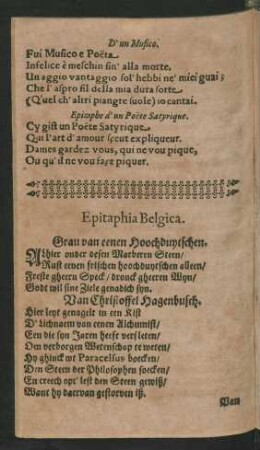 D'un Musico.
Fui Musico e Poëta.
Infelice è meschin sin' alla morte.
Un aggio vantaggio sol' hebbi ne' miei guai;
Che l'aspro fil della mia dura sorte.
(Q'uel ch' altri piangre suole) io cantai.
Epitaphe d'un Poëte Satyrique.
Cy gist un Poëte Satyrique.
Qui l'art d'amour sçeut expliqueur.
Dames gardez vous, qui ne vou pique,
Ou qu'il ne vou face piquer.
Epitaphia Belgica.
Grau van eenen Hoochduytschen.
Alhier onder desen Marberen Steen/
Rust eenen frischen hoochduytschen alleen/
Freste gheern Speck/ dronck gheeren Wyn/
Godt wil sine Ziele genadich syn.
Van Christoffel Hagenbusch.
Hier leyt genagelt in een Kist
D' lichaem van eenen Alchumist/
Een die syn Jaren heeft versleten/
Om verborgen Wetenschap te weten/
Hy ghinck wt Paracelsus boecken/
Den Steen der Philosophen soecken/
En creech opt' lest den Steen gewiß/
Want hy daervan gestorven iß.
Van